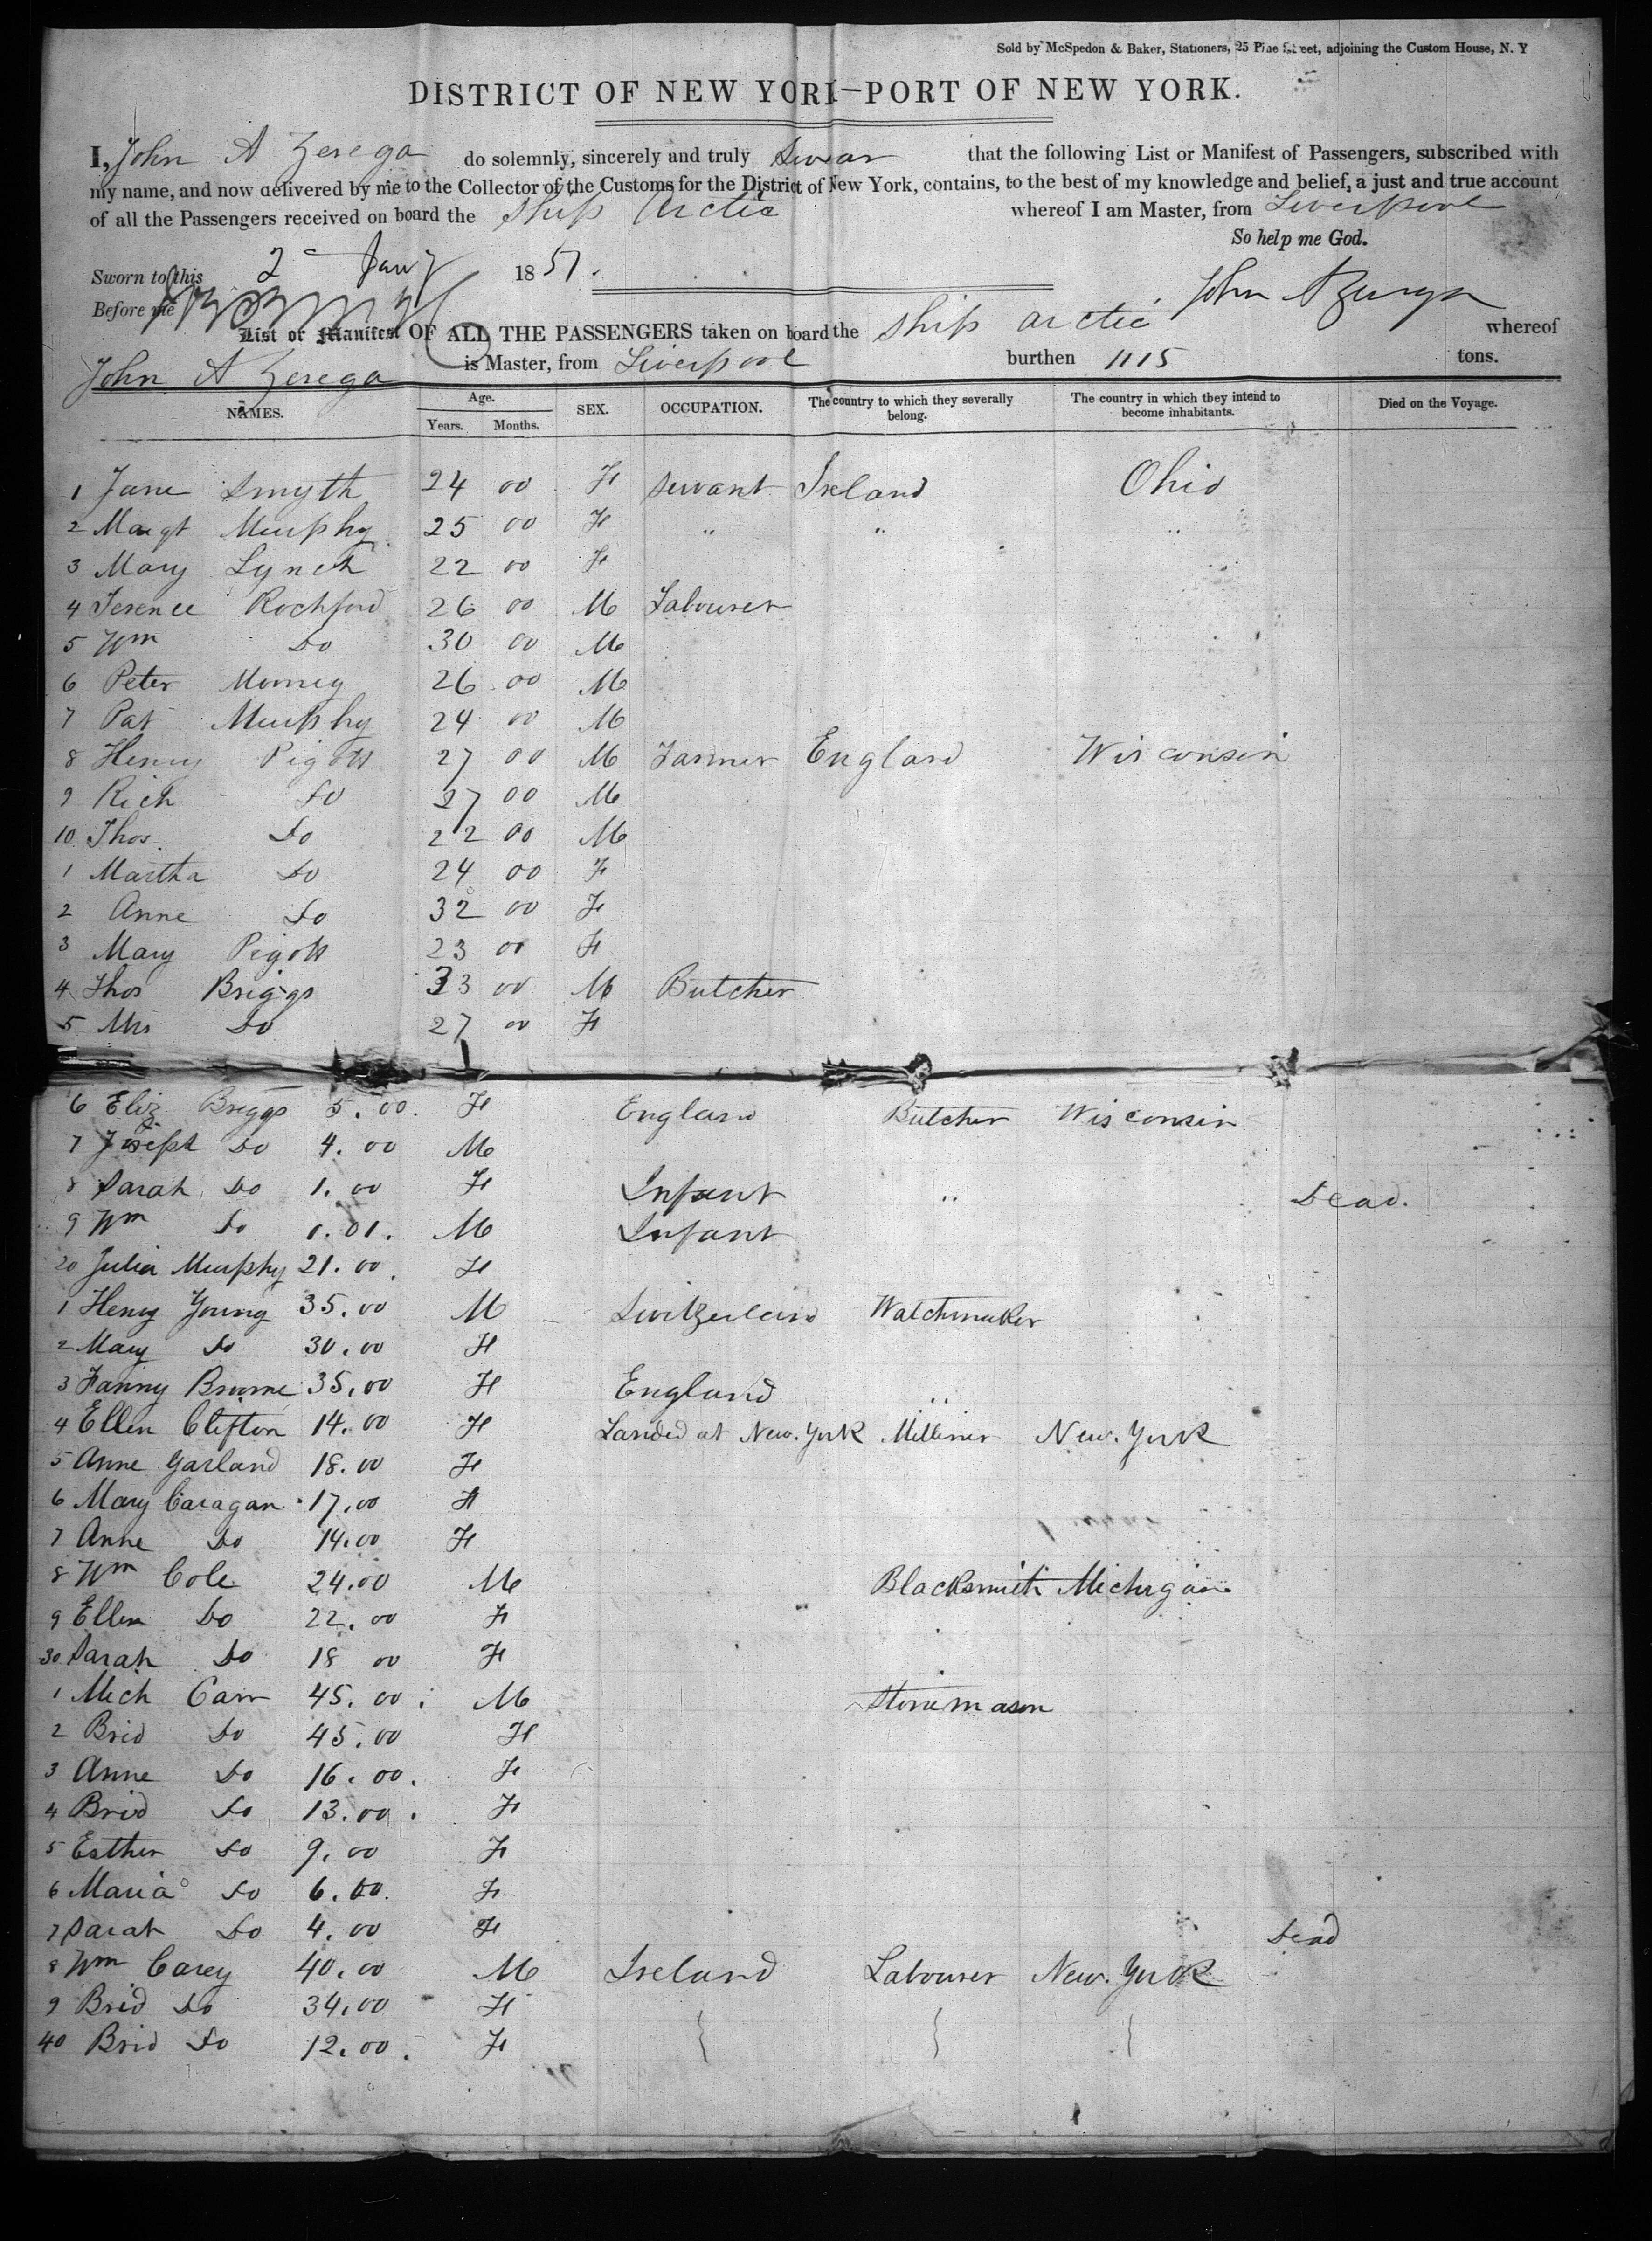 Sold by McSpedon & Baker, Stationers, 25 Pine Street, adjoining the Custom House, N. Y
DISTRICT OF NEW YORK—PORT OF NEW YORK.
I, John A Zerega do solemnly, sincerely and truly Swear that the following List or Manifest of Passengers, subscribed with
my name, and now delivered by me to the Collector of the Customs for the District of New York, contains, to the best of my knowledge and belief, a just and true account
of all the Passengers received on board the Ship Arctic whereof I am Master, from Liverpool
So help me God.
Sworn to this 2d Jany 1851.
Before me
John A Zerega
List or Manifest OF ALL THE PASSENGERS taken on board the Ship Arctic whereof
John A Zerega is Master, from Liverpool burthen 1115 tons.
NAMES. Age. Years. Months. SEX. OCCUPATION. The country to which they severally belong. The country in which they intend to become inhabitants. Died on the Voyage.
1 Jane Smyth 24 00 F Servant Ireland Ohio
2 Margt Murphy 25 00 F " " "
3 Mary Lynch 22 00 F
4 Terence Rochford 26 00 M Labourer
5 Wm Do 30 00 M
6 Peter 26 00 M
7 Pat Murphy 24 00 M
8 Henry Pigott 27 00 M Farmer England Wisconsin
9 Rich Do 27 00 M
10 Thos. Do 22 00 M
1 Martha Do 24 00 F
2 Anne Do 32 00 F
3 Mary Pigott 23 00 F
4 Thos Briggs 33 00 M Butcher
5 Mrs Do 27 00 F
6 Eliz Briggs 5.00. F England Butcher Wisconsin
7 Joseph Do 4.00 M
8 Sarah Do 1.00 F Infant " Dead.
9 Wm Do 0.01. M Infant
20 Julia Murphy 21.00. F
1 Henry Young 35.00 M Switzerland Watchmaker
2 Mary Do 30.00 F
3 Fanny Broome 35.00 F England "
4 Ellen Clifton 14.00 F Landed at New. York Milliner New. York
5 Anne Garland 18.00 F
6 Mary Caragan 17.00 F
7 Anne Do 14.00 F
8 Wm Cole 24.00 M Blacksmith Michigan
9 Ellen Do 22.00 F
30 Sarah Do 18 00 F
1 Mich Carr 45.00. M Stonemason
2 Brid Do 45.00 F
3 Anne Do 16.00. F
4 Brid Do 13.00. F
5 Esther Do 9.00 F
6 Maria Do 6.00. F
7 Sarah Do 4.00 F Dead
8 Wm Carey 40.00 M Ireland Labourer New. York
9 Brid Do 34.00 F
40 Brid Do 12.00. F